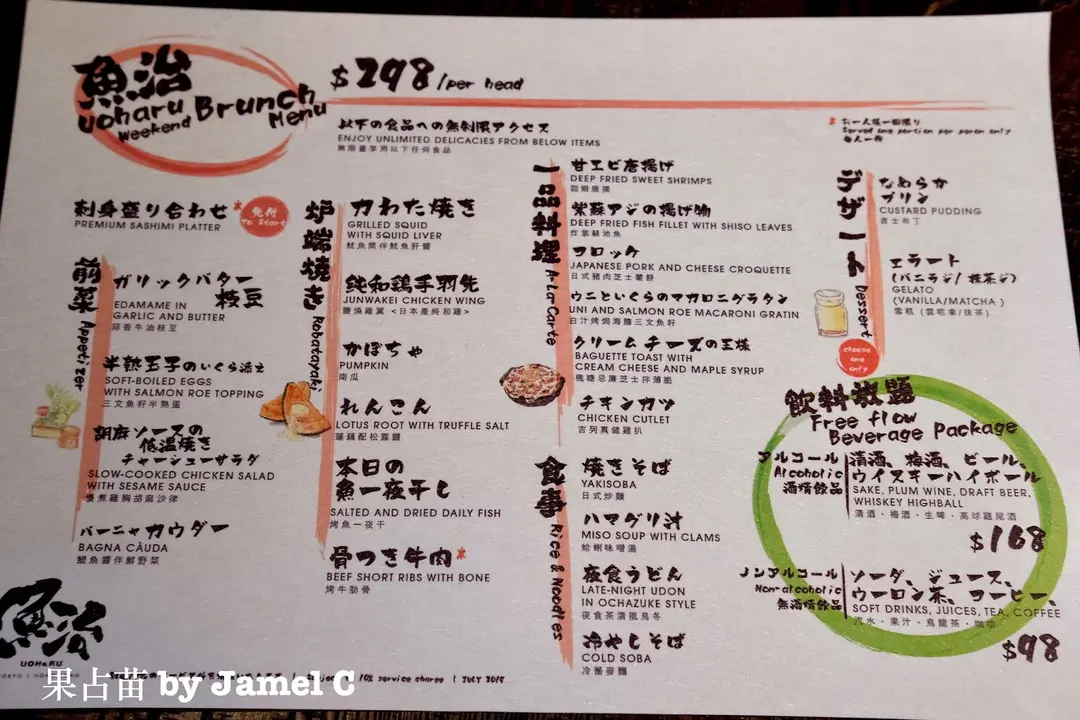 魚治
Uoharu Brunch
Weekend Menu
$298/per head
以下の食品への無制限アクセス
ENJOY UNLIMITED DELICACIES FROM BELOW ITEMS
無限量享用以下任何食品
* お一人様一回限り
Served one portion per person only
每人一份
刺身盛り合わせ*
PREMIUM SASHIMI PLATTER
先付
To Start
前菜 Appetizer
ガリックバター
枝豆
EDAMAME IN
GARLIC AND BUTTER
蒜香牛油枝豆
半熟玉子のいくら添え
SOFT-BOILED EGGS
WITH SALMON ROE TOPPING
三文魚籽半熟蛋
胡麻ソースの
低温焼き
チャーシューサラダ
SLOW-COOKED CHICKEN SALAD
WITH SESAME SAUCE
慢煮雞胸胡麻沙律
バーニャカウダー
BAGNA CÀUDA
鯷魚醬伴鮮野菜
炉端焼き Robatayaki
力わた焼き
GRILLED SQUID
WITH SQUID LIVER
魷魚筒伴魷魚肝醬
純和鶏手羽先
JUNWAKEI CHICKEN WING
鹽燒雞翼 <日本產純和雞>
かぼちゃ
PUMPKIN
南瓜
れんこん
LOTUS ROOT WITH TRUFFLE SALT
蓮藕配松露鹽
本日の
魚一夜干し
SALTED AND DRIED DAILY FISH
烤魚一夜干
骨つき牛肉*
BEEF SHORT RIBS WITH BONE
烤牛肋骨
一品料理 A-La-Carte
甘エビ唐揚げ
DEEP FRIED SWEET SHRIMPS
甜蝦唐揚
紫蘇アジの揚げ物
DEEP FRIED FISH FILLET WITH SHISO LEAVES
炸紫蘇池魚
コロッケ
JAPANESE PORK AND CHEESE CROQUETTE
日式豬肉芝士薯餅
ウニといくらのマカロニグラタン
UNI AND SALMON ROE MACARONI GRATIN
白汁烤焗海膽三文魚籽
クリームチーズの王様
BAGUETTE TOAST WITH
CREAM CHEESE AND MAPLE SYRUP
楓糖忌廉芝士拼薄脆
チキンカツ
CHICKEN CUTLET
吉列真健雞扒
食事 Rice & Noodles
焼きそば
YAKISOBA
日式炒麵
ハマグリ汁
MISO SOUP WITH CLAMS
蛤蜊味噌湯
夜食うどん
LATE-NIGHT UDON
IN OCHAZUKE STYLE
夜食茶漬風烏冬
冷やしそば
COLD SOBA
冷蕎麥麵
デザート Dessert
なめらか
プリン
CUSTARD PUDDING
吉士布丁
ェラート
(バニラジ/抹茶ジ)
GELATO
(VANILLA/MATCHA )
雪糕（雲呢拿/抹茶）
choose
one
only
飲料放題
Free flow
Beverage Package
アルコール
Alcoholic
酒精飲品
清酒、梅酒、ビール、
ウイスキーハイボール
SAKE, PLUM WINE, DRAFT BEER,
WHISKEY HIGHBALL
清酒・梅酒・生啤・高球雞尾酒
$168
ノンアルコール
Non-alcoholic
無酒精飲品
ソーダ、ジュース、
ウーロン茶、コーヒー、
SOFT DRINKS, JUICES, TEA, COFFEE
汽水・果汁・烏龍茶・咖啡
$98
魚治
UOHARU
10% service charge | JULY 2019
果占苗 by Jamel C